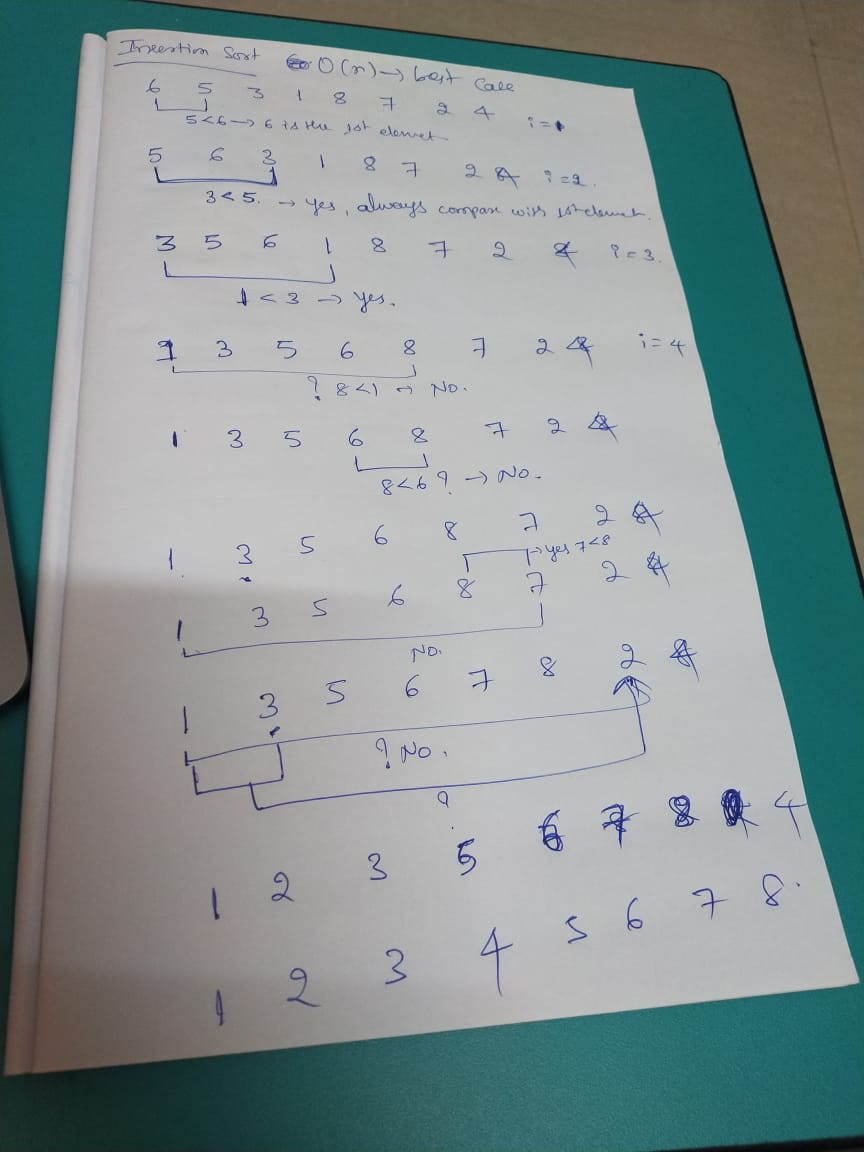 Insertion Sort O(n) → best Case
6 5 3 1 8 7 2 4 i = 1
5<6 → 6 is the 1st element
5 6 3 1 8 7 2 4 i = 2.
3<5. → yes, always compare with 1st element.
3 5 6 1 8 7 2 4 i = 3.
1 < 3 → yes.
1 3 5 6 8 7 2 4 i = 4
? 8<1 → No.
1 3 5 6 8 7 2 4
8<6? → No.
1 3 5 6 8 7 2 4
→ yes 7<8
1 3 5 6 8 7 2 4
No.
1 3 5 6 7 8 2 4
? No.
?
1 2 3 5 6 7 8 4
1 2 3 4 5 6 7 8.